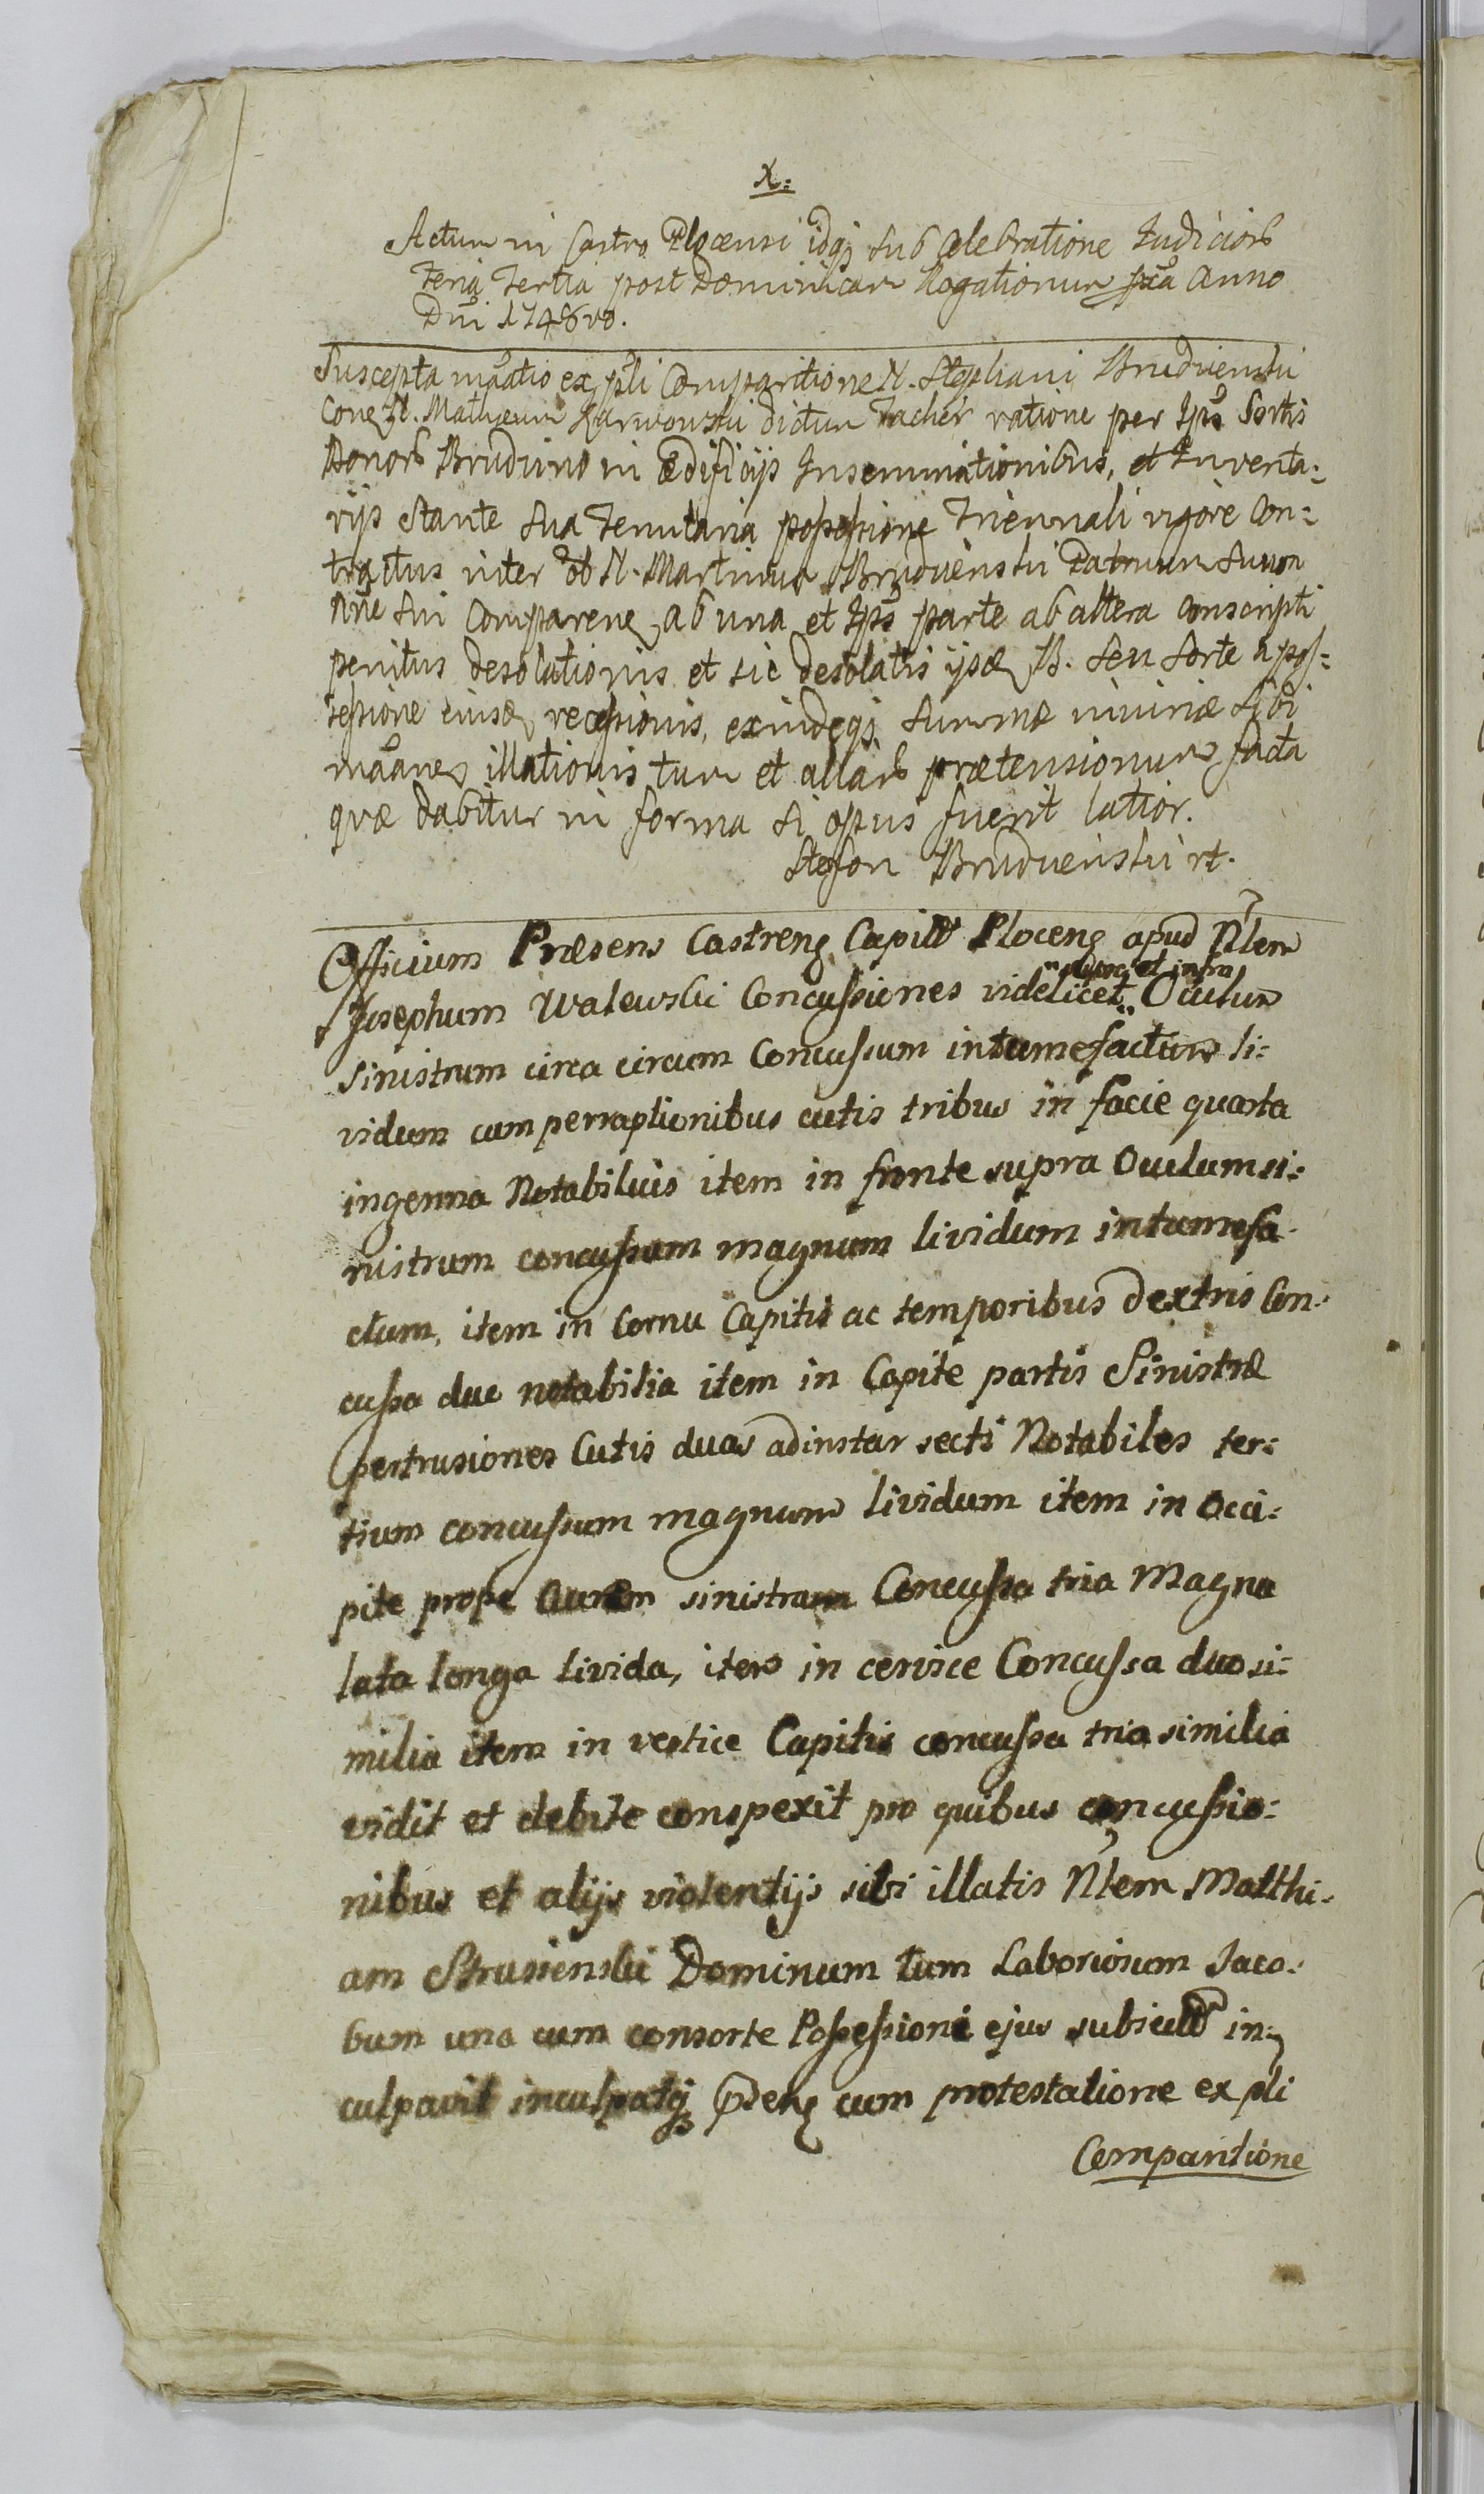 X:
Actum in Castro Plocensi idqs sub Celebratione Judiciorb
Feria Tertia post Dominicam Rogationum pxa Anno
Dni 1748vo.
Suscepta mãatio ex pli Comparitione N. Stephani Brudnienski
Cone N. Mathæum Karwowski dictum Kacher ratione per Ips Sortis
Bonorb Brudnino in Ædificijs Inseminationibus, et Inventa:
rijs stante sua Tenutaria possessione Triennali vigore Con:
tractus inter ol N. Martinum Brudnienski Patruum suum
nñe sui Comparenę ab una et Ips parte ab altera conscripti
penitus desolationis et sic desolatis ijsd B. seu sorte a pos:
sessione eiusd recessionis, exindeqs summæ miuriæ sibi
mãaneo illationis tum et aliarb prætensionum facta
quæ dabitur in forma si opus fuerit latior.
Stefan Brudnienski rt.
Officium Præsens Castreng Capitt Ploceng apud Nlem
Josephum Walewski Concussiones videlicet Oculum
et infra
sinistrum circa circum Concussum intumefactum li:
vidum cum perraptionibus cutis tribus in facie quarta
in genna Notabiluis item in fronte supra Oculum si:
nistrum concussum magnum lividum intumefa:
ctum, item in Cornu Capitis ac temporibus dextris Con:
cussa duo notabilia item in Capite partis Sinistræ
pertrusiones Cutis duas adinstar secti Notabiles ter:
tium concussum magnum lividum item in Occi:
pite prope Aurem sinistram Concussa tria Magna
lata longa livida, item in cervice Concussa duo si:
milia item in vertice Capitis concussa tria similia
vidit et debite conspexit pro quibus concussio:
nibus et alijs violentijs sibi illatis Nlem Matthi:
am Strusienski Dominum tum Laboriosum Jaco:
bum una cum consorte Possessioni ejus subicitt in:
culpavit inculpatqs pdeng cum protestatione ex pli
Comparitione